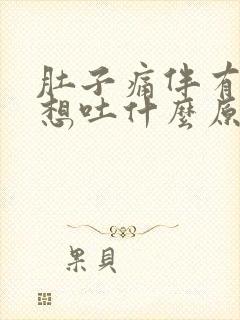 肚子痛伴有
想吐什麼原
果貝